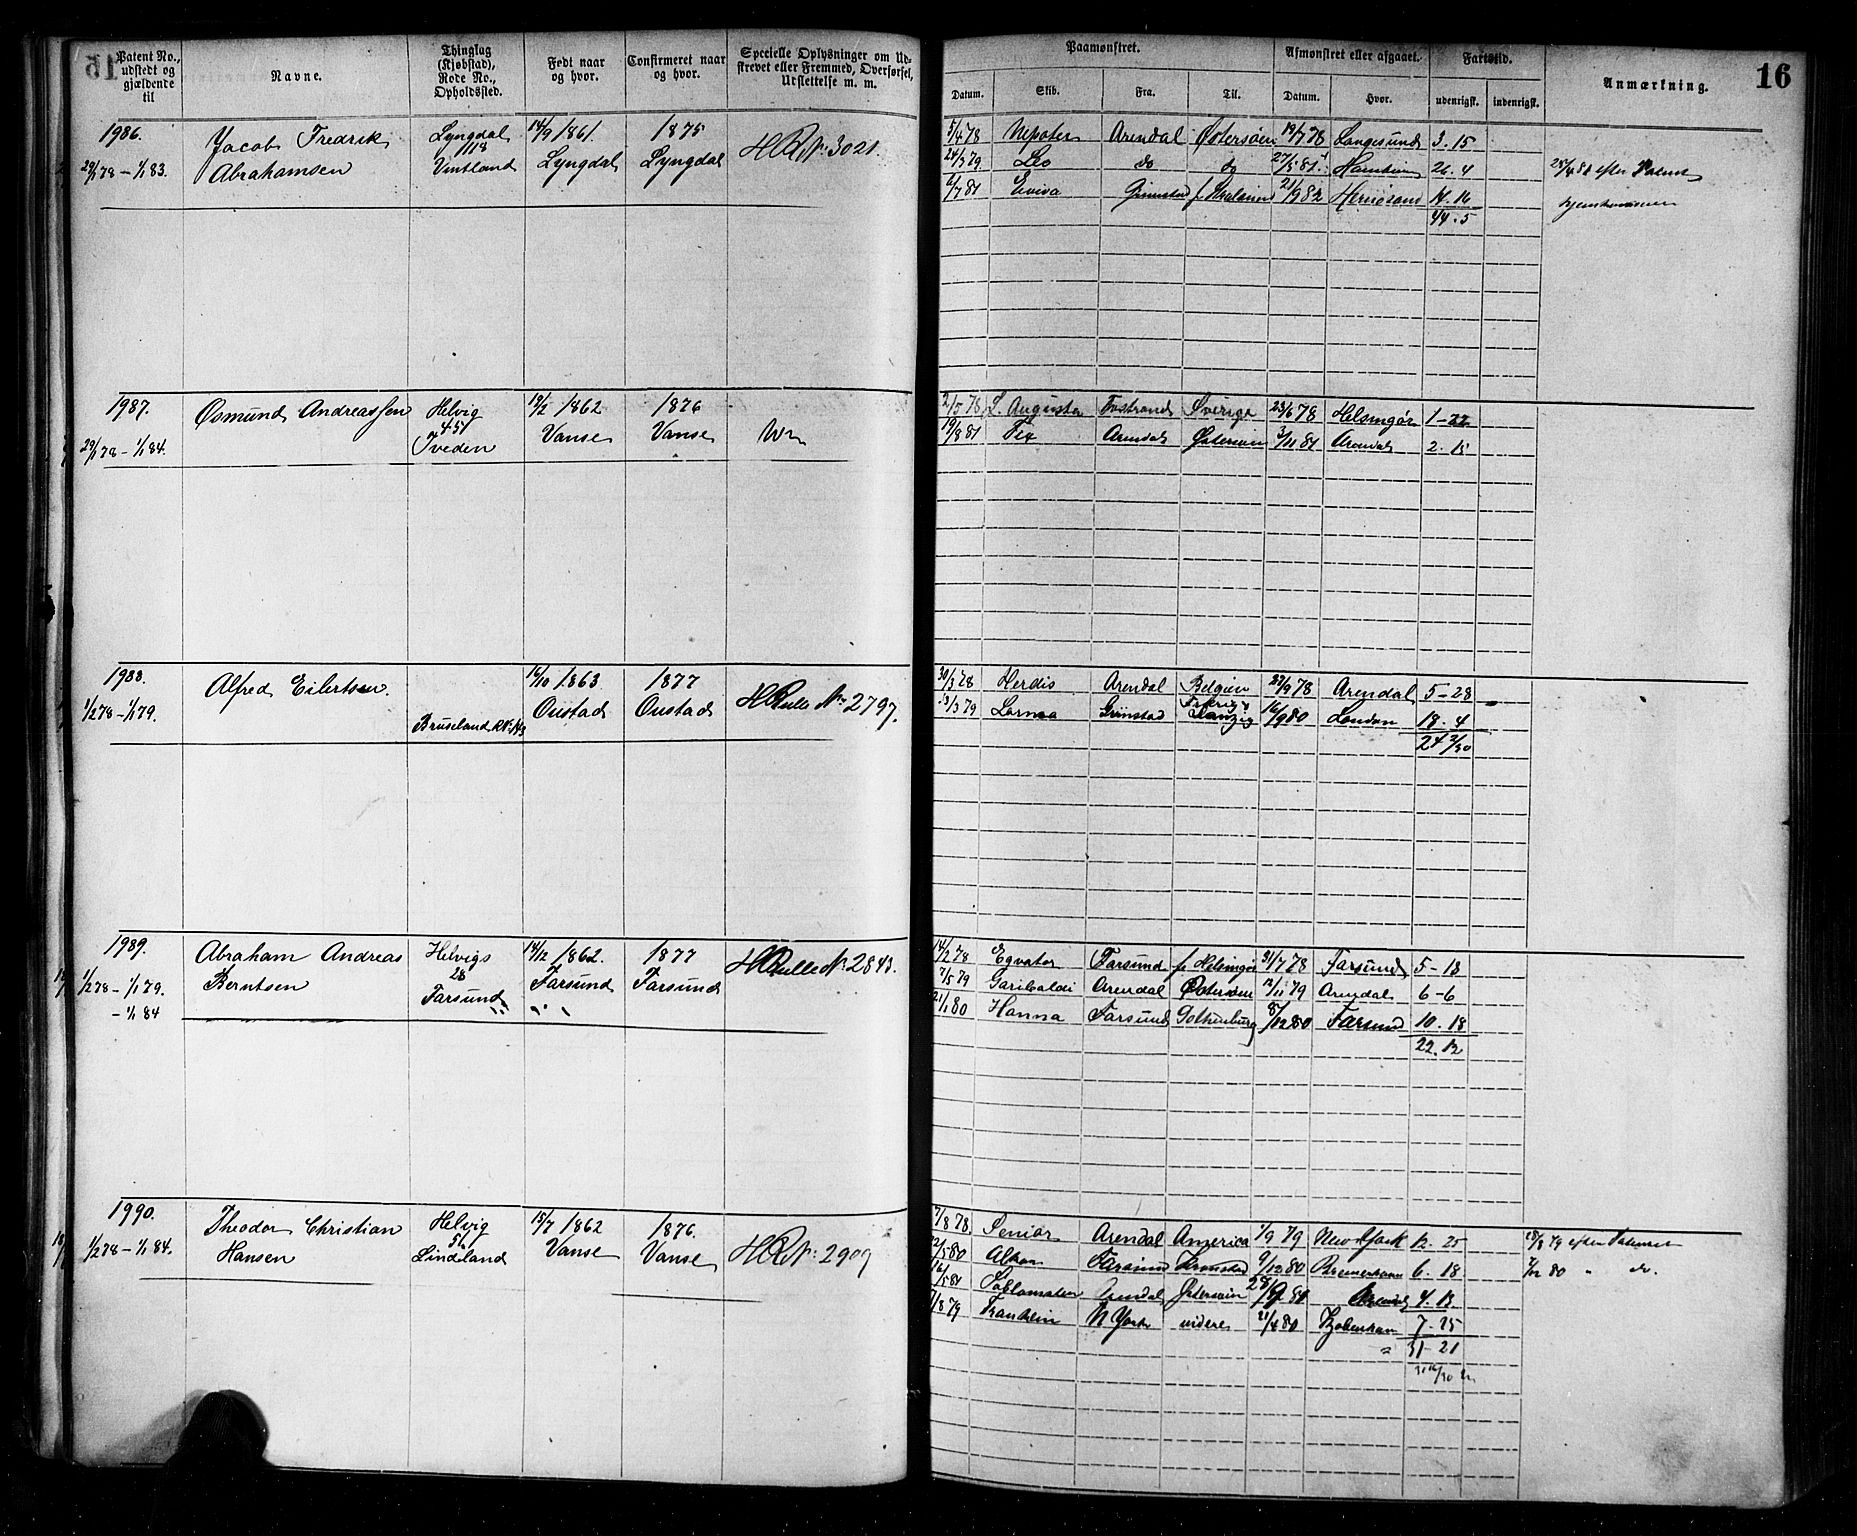 Patent No., udstedt og gjældende til
Navne.
Thinglag (Kjøbstad), Rode No., Opholdssted.
Født naar og hvor.
Confirmeret naar og hvor.
Specielle Oplysninger om Udskrevet eller Fremmed, Overførsel, Udslettelse m. m.
Paamønstret.
Afmønstret eller afgaaet.
Fartstid.
Anmærkning.
16
Datum.
Skib.
Fra.
Til.
Datum.
Hvor.
udenrigsk.
indenrigsk.
1986. Jacob Fredrik Lyngdal 14/9 1861. 1875 H R № 3021.
118
29/1 78 – 1/1 83. Abrahamsen Vintland Lyngdal Lyngdal
5/4 78 Nepoten Arendal Østersøen 19/7 78 Langesund 3. 15
24/3 79 Leo do do 27/5 81 26. 4 25/4 81 efter Patent
6/7 81 Eviva Grimstad 21/9 82 Hernøsand 14. 16 hjemkommen
44. 5
1987. Osmund Andreassen Helvig 19/2 1862 1876
451
29/1 78 – 1/1 84. Tveden Vanse Vanse
2/5 78 L. Augusta Sverige 23/6 78 Helsingør 1 – 22
19/8 81 Arendal Østersøen 3/11 81 Arendal 2. 15
1988. Alfred Eilertsen. 14/10 1863 1877 H Rulle № 2797.
1/2 78 – 1/1 79. Bruseland Oustad Oustad
30/3 78 Herdis Arendal Belgien 27/9 78 Arendal 5 – 28
13/3 79 Lorna Grimstad Danzig 16/9 80 London 18. 4
24 2/30
1989. Abraham Andreas Helvigs 14/12 1862. 1877 H Rulle № 2843.
28
1/2 78 – 1/1 79. Berntsen Farsund Farsund Farsund
– 1/1 84
14/2 78 Eqvator Farsund Helsingør 31/7 78 Farsund 5 – 18
7/5 79 Garibaldi Arendal Østersøen 12/11 79 Arendal 6 – 6
21/1 80 Hanna Farsund Gothenburg 8/12 80 Farsund 10. 18
22. 12
1990. Theodor Christian Helvig 15/7 1862 1876. H R № 2909
51
1/2 78 – 1/1 84. Hansen Lindland Vanse Vanse
7/8 78. Senior Arendal America 1/9 79 New York 12. 25 28/8 79 efter Patentet
22/5 80 Farsund Kronstad 9/12 80 Bremerhavn 6. 18 7/12 80 " do.
16/5 81 Arendal Østersøen 28/9 81 Arendal 4. 13
1/8 79 Franklin N York videre 21/4 80 Kjøbenhavn 7 – 25
" 31 – 21